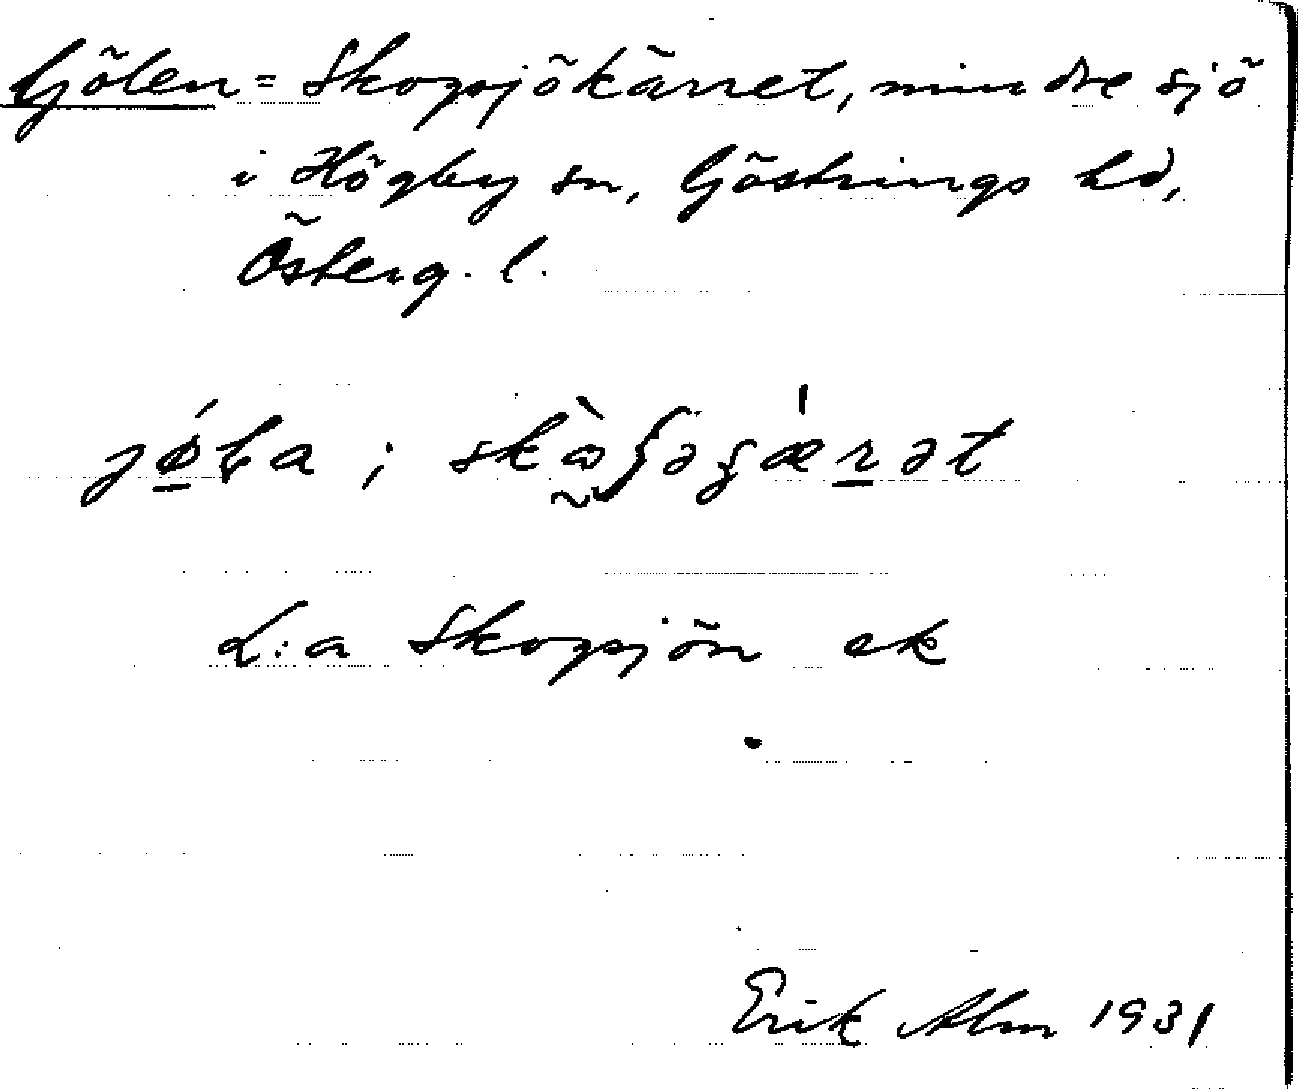 Gölen = Skogsjökärret, mindre sjö
i Högby sn, Göstrings hd,
Österg. l.
L:a Skogsjön ek
Erik Alm 1931